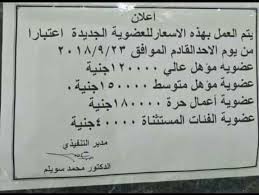 اعلان
يتم العمل بهذه الاسعار للعضوية الجديدة اعتبارا
من يوم الاحد القادم الموافق ٢٠١٨/٩/٢٣
عضويه مؤهل عالي ١٢٠٠٠٠ جنية
عضوية مؤهل متوسط ١٥٠٠٠٠ جنية
عضوية أعمال حرة ١٨٠٠٠٠ جنية
عضوية الفئات المستثناة ٤٠٠٠٠ جنية
مدير التنفيذي
الدكتور محمد سويلم